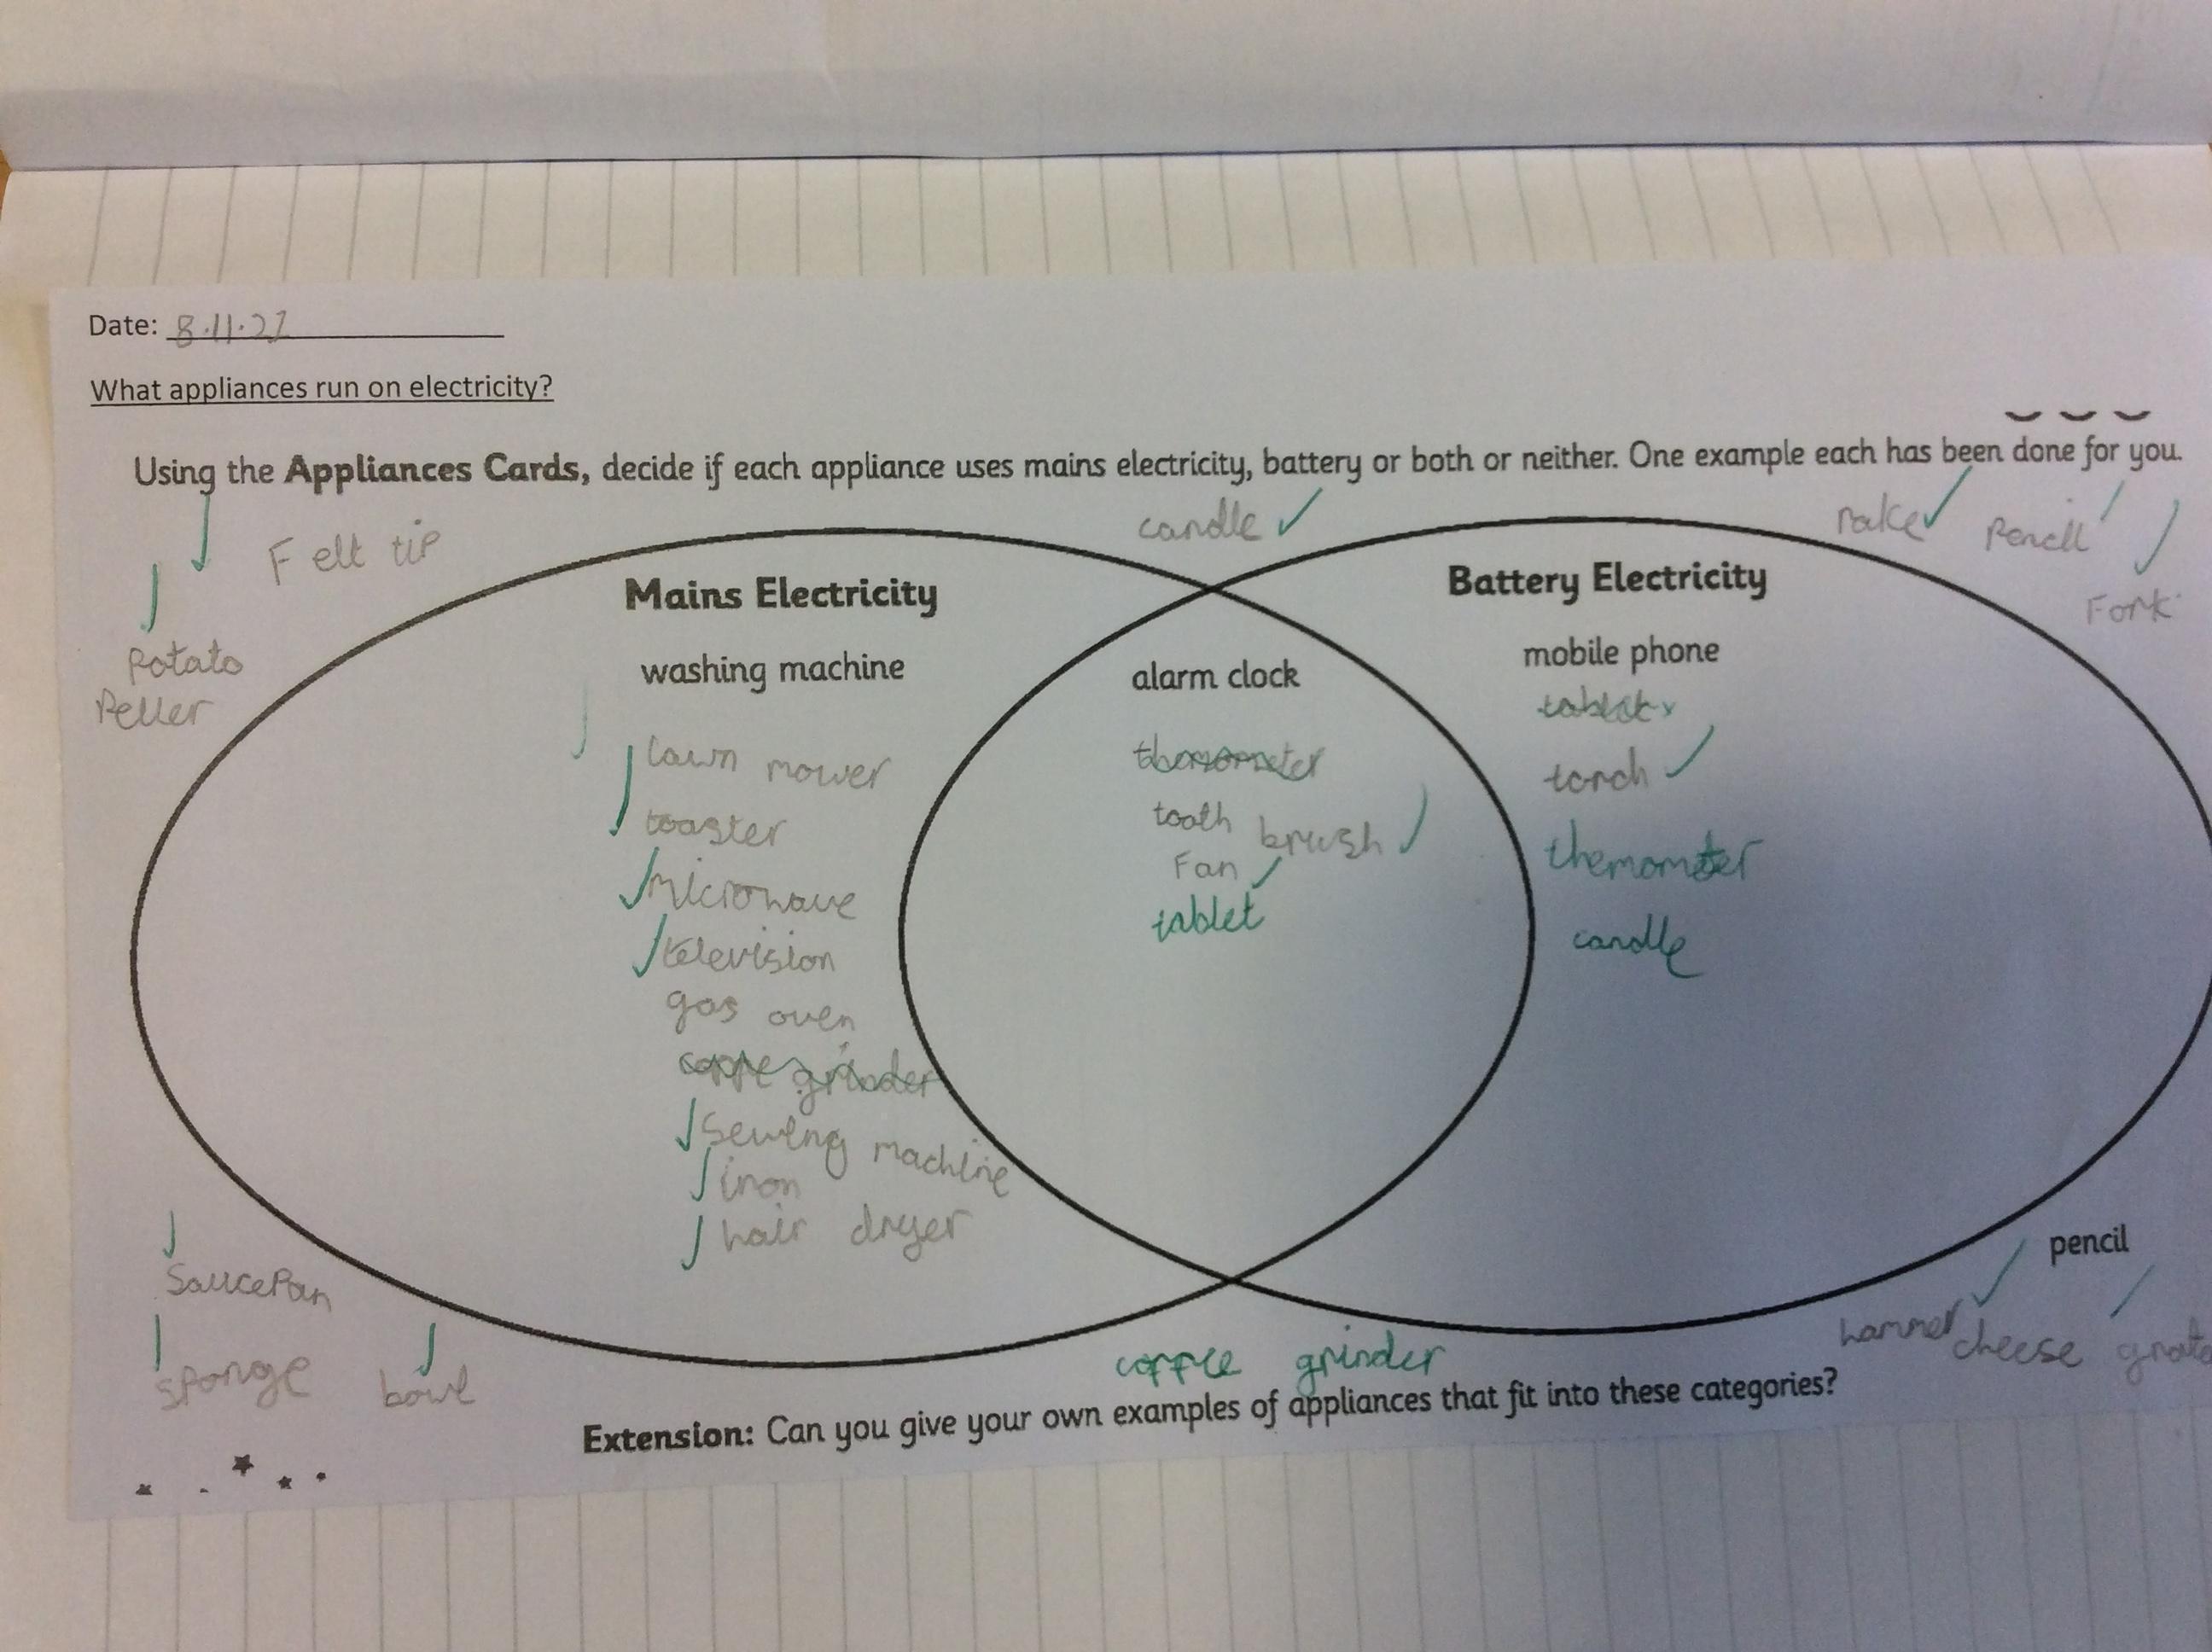 Date: 8.11.21
What appliances run on electricity?
Using the Appliances Cards, decide if each appliance uses mains electricity, battery or both or neither. One example each has been done for you.
candle
rake
Pencil
Felt tip
Fork
Potato
Peller
Mains Electricity
washing machine
lawn mower
toaster
microwave
television
gas oven
coppe grinder
sewing machine
iron
hair dryer
alarm clock
thomometer
tooth brush
Fan
tablet
Battery Electricity
mobile phone
tablet x
torch
themometer
candle
SaucePan
sponge
bowl
pencil
hammer
cheese
coffee grinder
Extension: Can you give your own examples of appliances that fit into these categories?